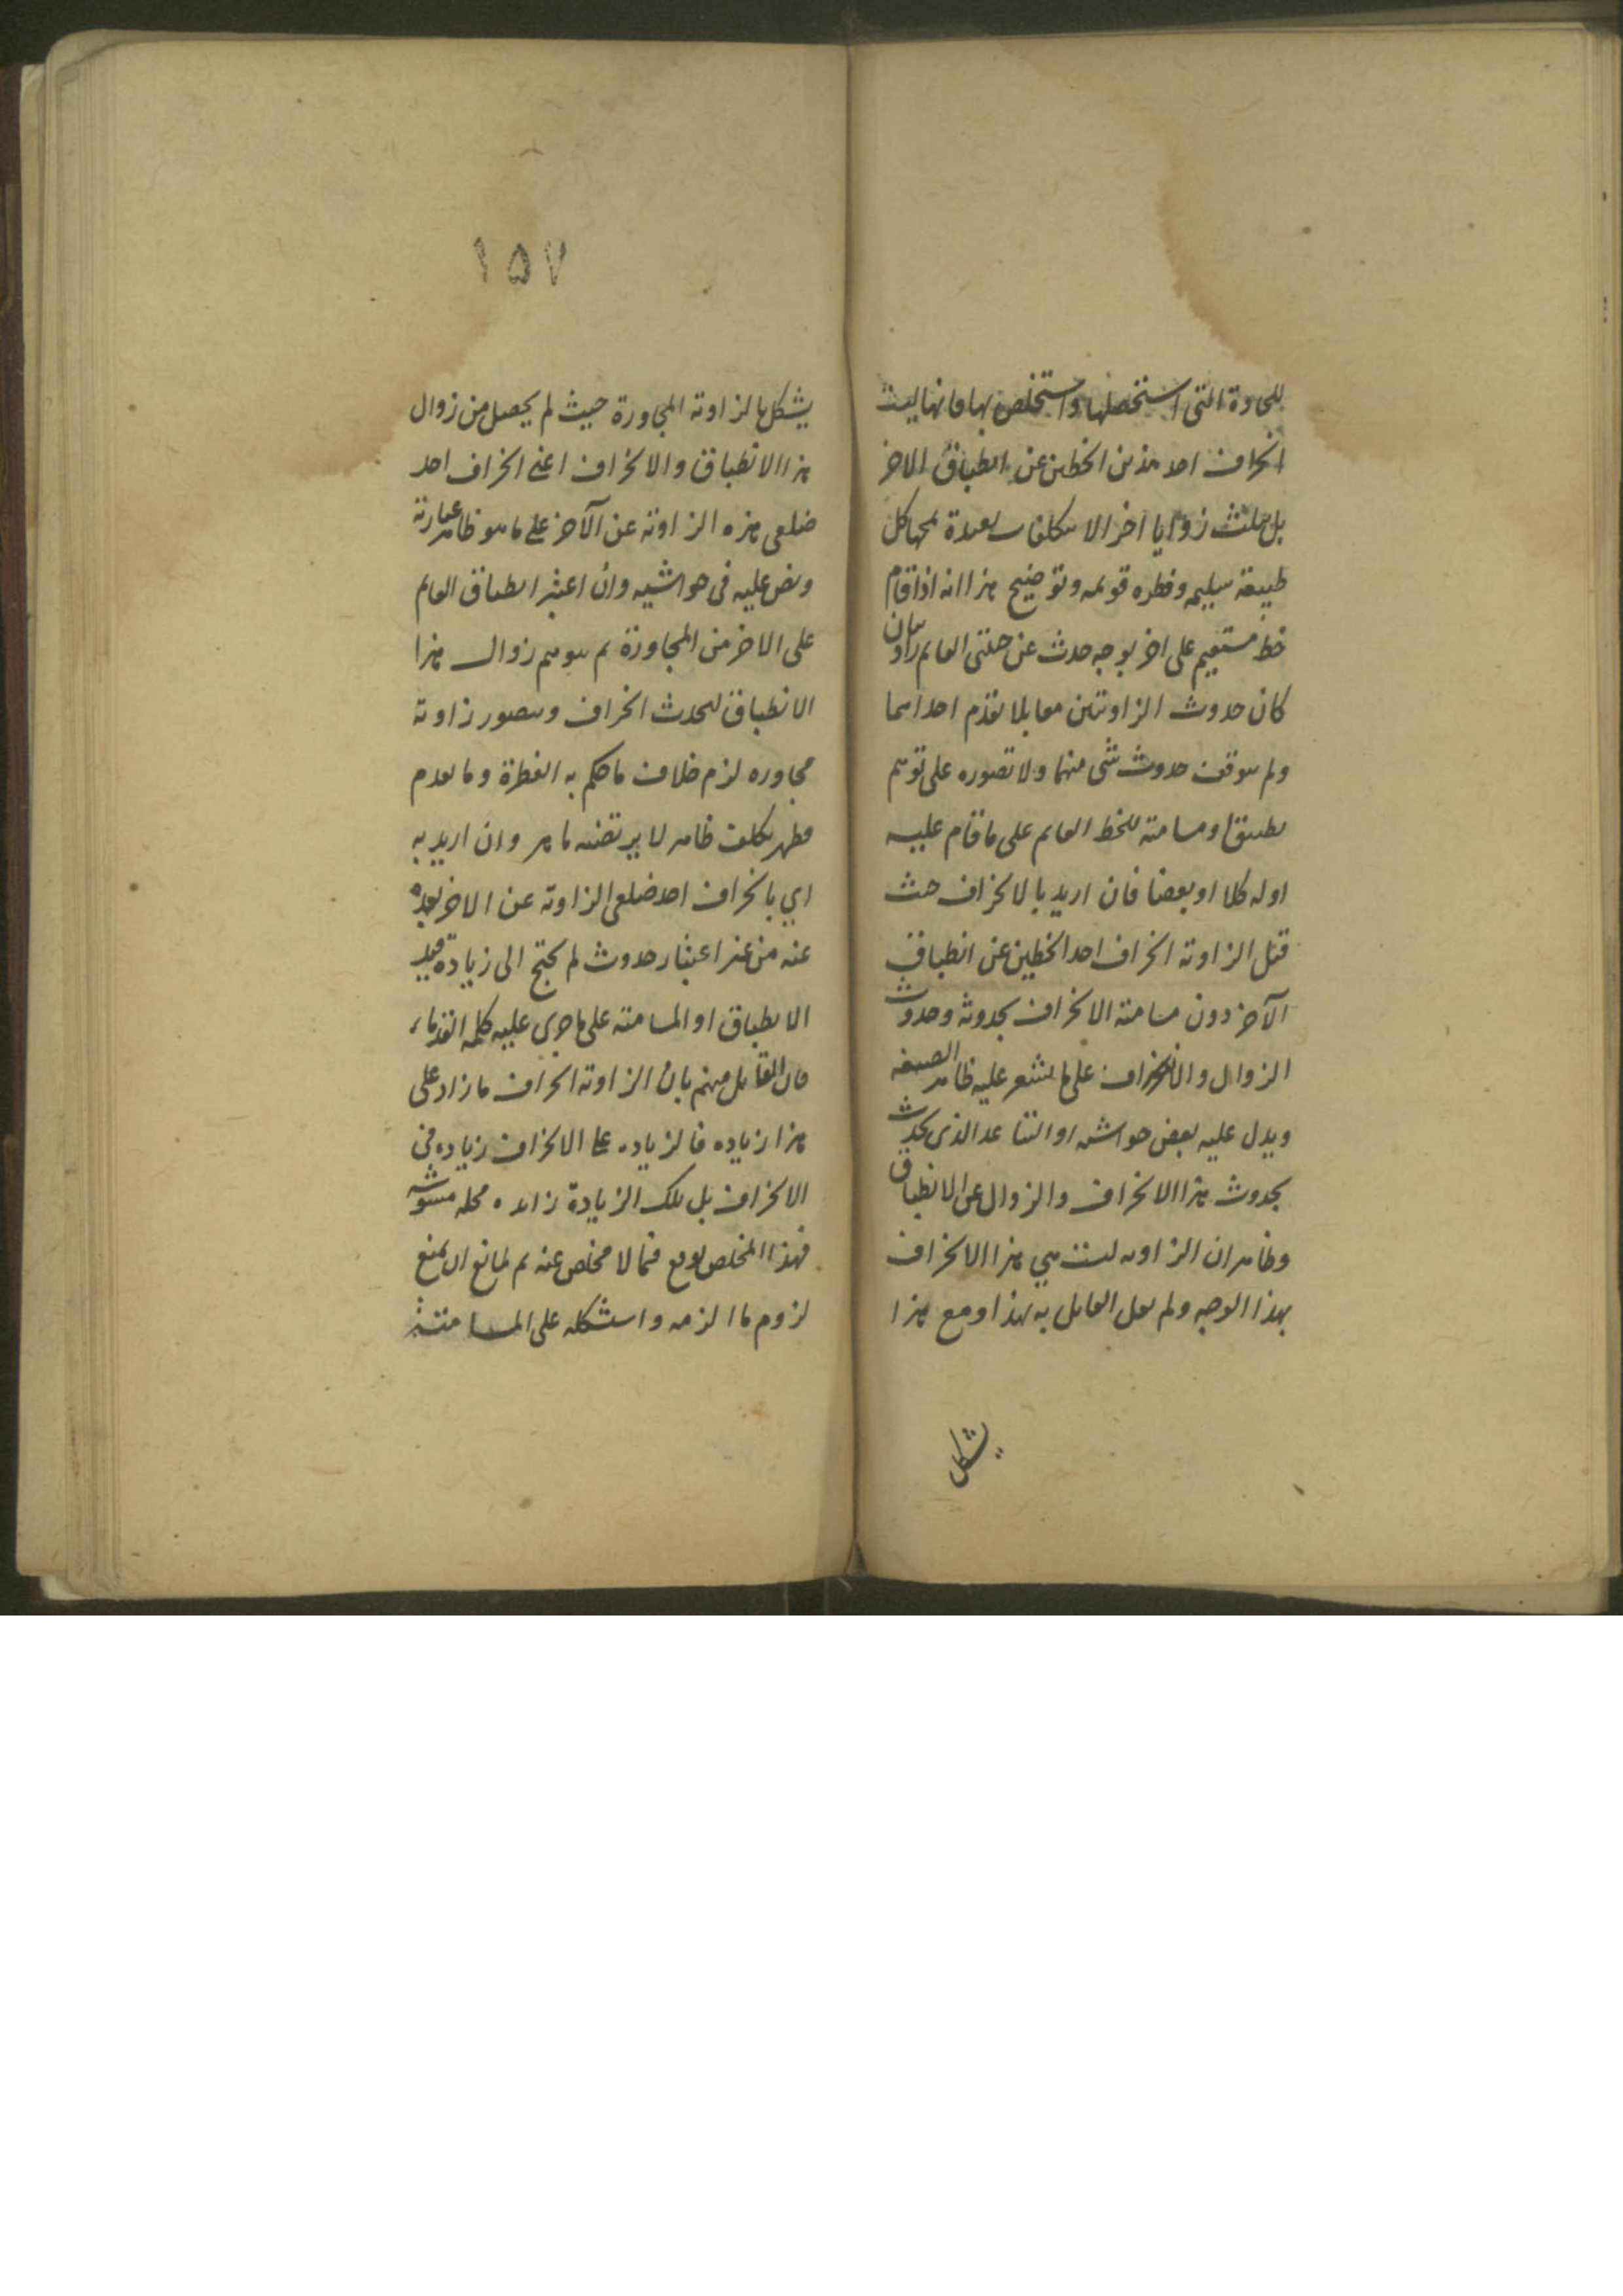 للحادة التى استخصلها واستخلص بها فانها ليست
انحراف احد هذين الخطين عن انطباق الاخر
بل مثلث زوايا اخر الا بتكلف بعيدة يمجها كل
طبيعة سليمه وفطره قويمه وتوضيح هذا انه اذا قام
خط مستقيم على اخر بوجه حدث عن جنبتى القايم زاويتان
كان حدوث الزاويتين معا بلا تقدم احداهما
ولم يتوقف حدوث شى منهما ولا تصوره على توهم
تطبيق او مسامتة للخط القايم على ما قام عليه
اوله كلا او بعضا فان اريد بالانحراف حيث
قيل الزاوية انحراف احد الخطين عن انطباق
الآخر دون مسامتة الانحراف بحدوثه وحدوث
الزوال والانحراف على ما يشعر عليه ظاهر الصيغه
ويدل عليه بعض حواشيه او التباعد الذى يحدث
بحدوث هذا الانحراف والزوال عن الانطباق
وظاهر ان الزاويه ليست هي هذا الانحراف
بهذا الوجه ولم يقل القايل به بهذا ومع هذا
يشكل
١٥٧
يشكل بالزاوية المجاورة حيث لم يحصل من زوال
هذا الانطباق والانحراف اعنى انحراف احد
ضلعى هذه الزاوية عن الآخر على ما هو ظاهر عبارته
ونص عليه فى حواشيه وان اعتبر انطباق القايم
على الاخر من المجاورة ثم يتوهم زوال هذا
الانطباق ليحدث انحراف ويتصور زاوية
مجاوره لزم خلاف ما حكم به الفطرة وما تقدم
فظهر تكلف ظاهر لا يرتضيه ماهر وان اريد به
اي بانحراف احد ضلعى الزاوية عن الاخر بعده
عنه من غير اعتبار حدوث لم يحتج الى زيادة قيد
الانطباق او المسامتة على ما جرى عليه كلمه القدماء
فان القايل منهم بان الزاوية انحراف ما زاد على
هذا زياده فالزياده على الانحراف زياده فى
الانحراف بل تلك الزيادة زايده محله مشوشه
فهذا المخلص يوقع فيما لا مخلص عنه ثم لمانع ان يمنع
لزوم ما الزمه واستشكله على المسامتة